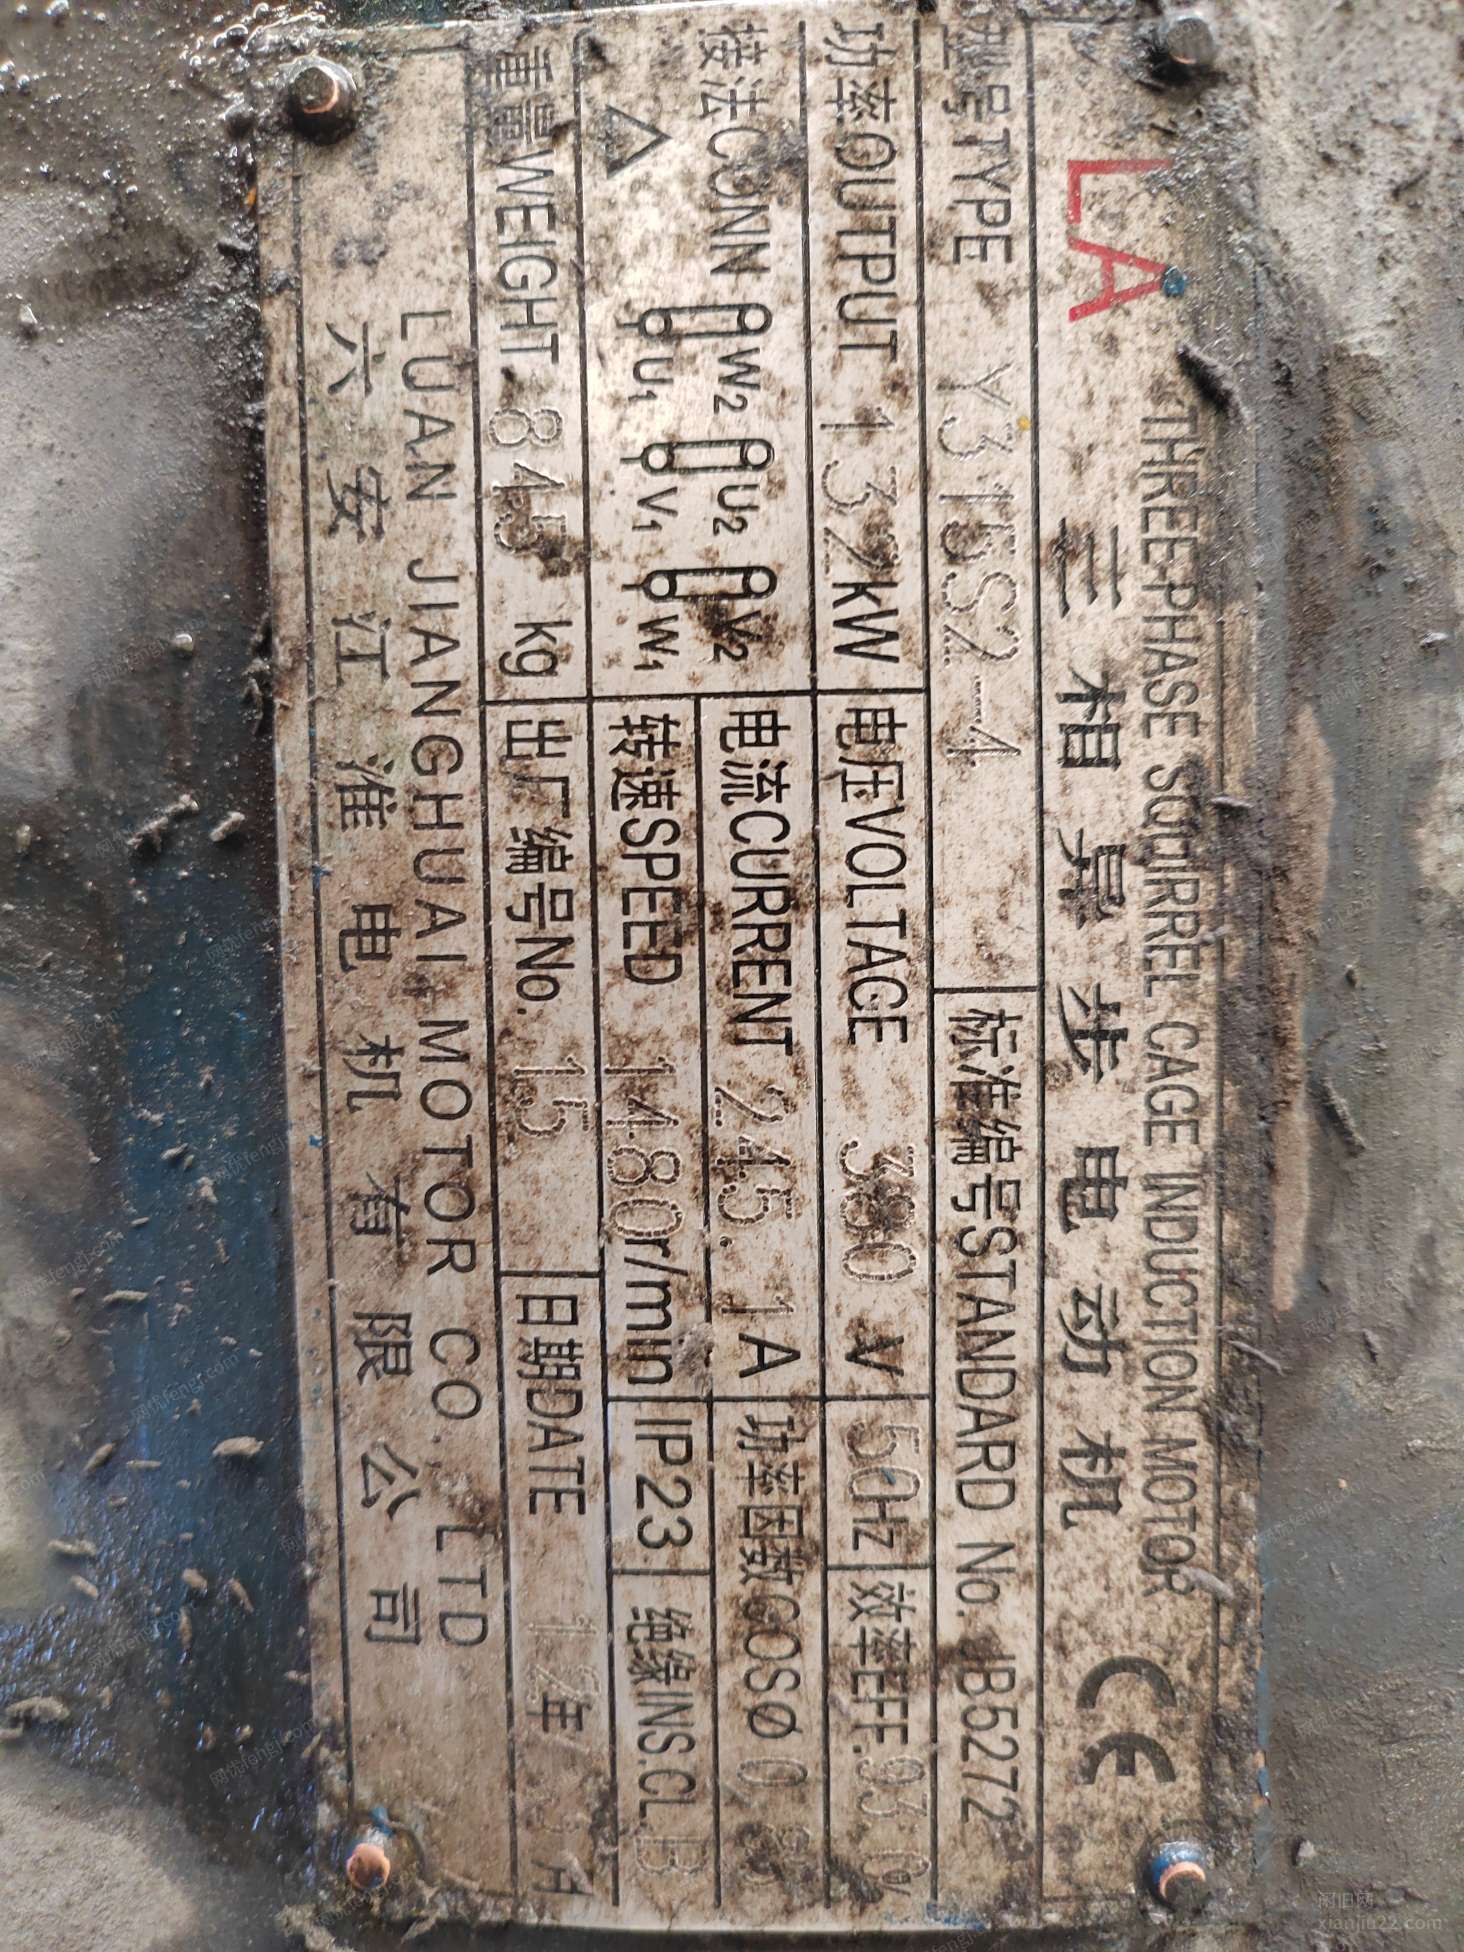 LA
THREE-PHASE SQUIRREL CAGE INDUCTION MOTOR
三相异步电动机
CE
型号TYPE Y315S2-4 标准编号STANDARD No. JB5272
功率OUTPUT 132kW 电压VOLTAGE 380 V 50Hz 效率EFF. 93.0
接法CONN 电流CURRENT 245.1A 功率因数COSØ 0.
△
W2 U2 V2
U1 V1 W1
转速SPEED 1480r/min IP23 绝缘INS.CL.B
重量WEIGHT 845 kg 出厂编号No. 15 日期DATE 12年 月
LUAN JIANGHUAI MOTOR CO., LTD
六安江淮电机有限公司
闲旧网
xianjiu22.com